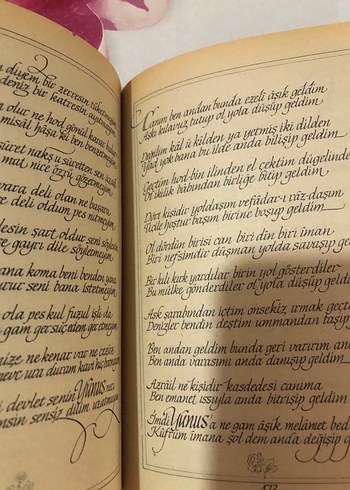 diyem bir zerresin
deniz bir katresin
olur ne hod gönül karar
misâl hâşâ ki ben
suret nakş u suretten seni
mat nice özrü gözetmeyem
vara deli olan ne başara
deli oldum pes nitmeyem
desin şart oldur seni söylesin
gayri dile söylemeyem
ana koma beni benden yana
seni bana istemeyem
ola pes kul fuzul işli
gam ger suç
ne kenar var ne
ura duram kavi hiç
devlet senin Yunus
sensiz dilim uzatmayam
Canım ben andan bunda ezeli âşık geldim
Aşkı kılavuz tutup ol yola düşüp geldim
Değilim kâl ü kîlden ya yetmiş iki dilden
Yad yok bana bu ilde anda bilişip geldim
Geçtim hod-bin ilinden el çektim dügelinden
Ol ikilik bâbından birliğe bitip geldim
Dört kişidir yoldaşım vefâdar ı râz-daşım
Üçile hoştur başım birine boşup geldim
Ol dördün birisi can biri din biri îman
Biri nefsimdir düşman yolda savaşıp ge
Bir kılı kırk yardılar birin yol gösterdiler
Bu mülke gönderdiler ol yola düşüp geldim
Aşk şarabından içtim onsekiz ırmak geçti
Denizler bendin deştim ummandan taşıp
Ben andan geldim bunda geri varırım an
Ben anda varasımı anda danışıp geldim
Azrâil ne kişidir kasdedesi canıma
Ben emanet ıssıyla anda bitrişip geldim
İmdi Yunus'a ne gam âşık melâmet bed
Küfrüm îmana şol dem anda değişip g